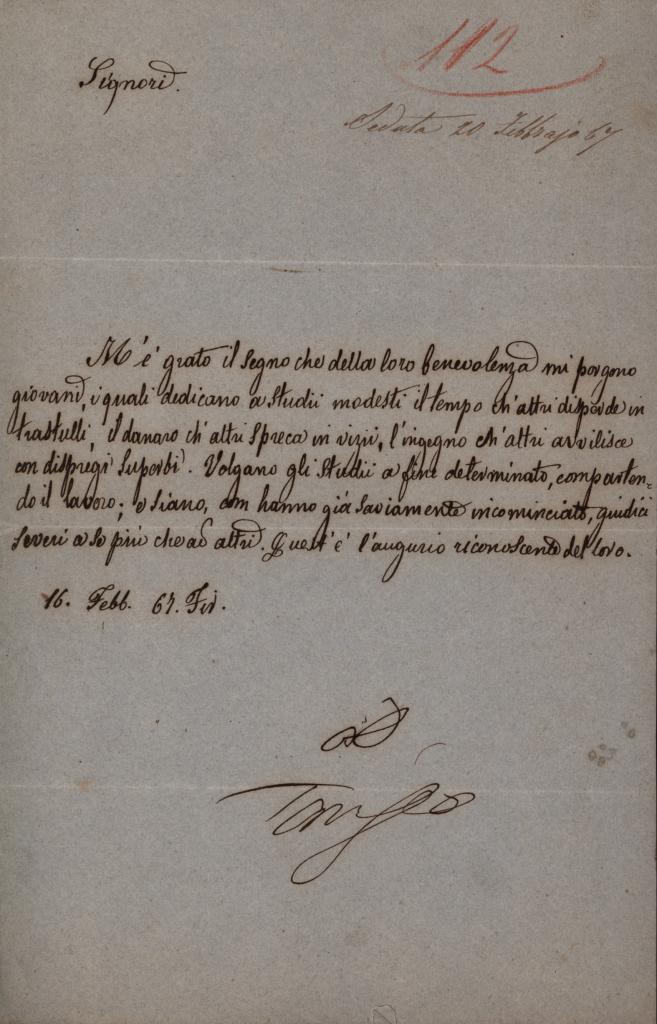 112
Signori.
Seduta 20. Febbrajo 67
M'è grato il segno che della loro benevolenza mi porgono
giovani, i quali dedicano a studii modesti il tempo ch'altri disperde in
trastulli, il danaro ch'altri spreca in vizii, l'ingegno ch'altri avvilisce
con dispregi superbi. Volgano gli studii a fine determinato, comparten-
do il lavoro; e siano, com hanno già saviamente incominciato, giudici
severi a se più che ad altri. Quest'è l'augurio riconoscente del loro.
16. Febb. 67. Fir.